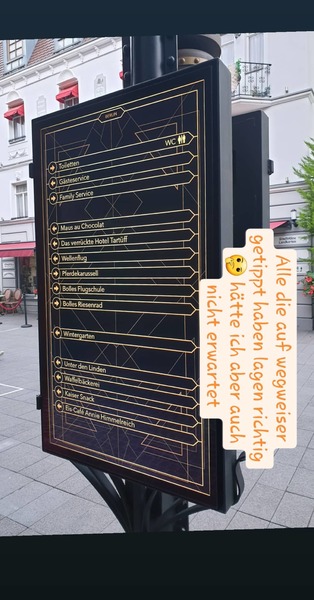 BERLIN
WC
Toiletten
Gästeservice
Family Service
Maus au Chocolat
Das verrückte Hotel Tartüff
Wellenflug
Pferdekarussell
Bolles Flugschule
Bolles Riesenrad
Wintergarten
Unter den Linden
Waffelbäckerei
Kaiser Snack
Eis-Café Annie Himmelreich
Alle die auf wegweiser
getippt haben lagen richtig
🫣 hätte ich aber auch
nicht erwartet